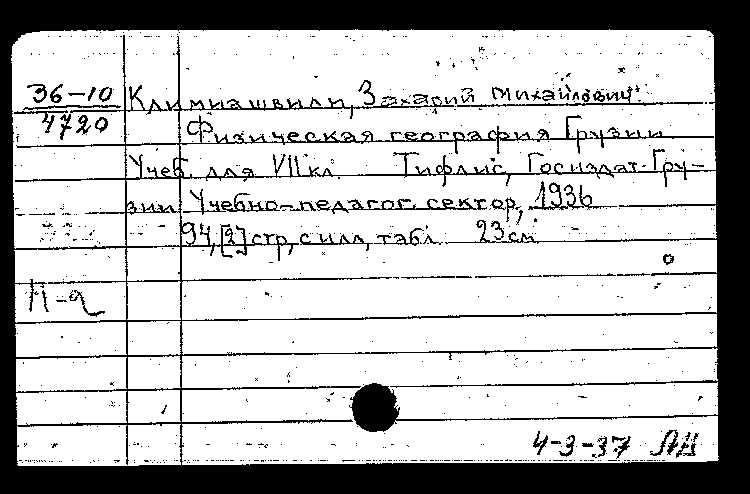 36-10 Климиашвили, Захарий Михайлович.
4720 Физическая география Грузии
Учеб. для VII кл. Тифлис, Госиздат Гру-
зии Учебно-педагог. сектор, 1936
94, [2] стр, с илл, табл. 23 см
4-3-37